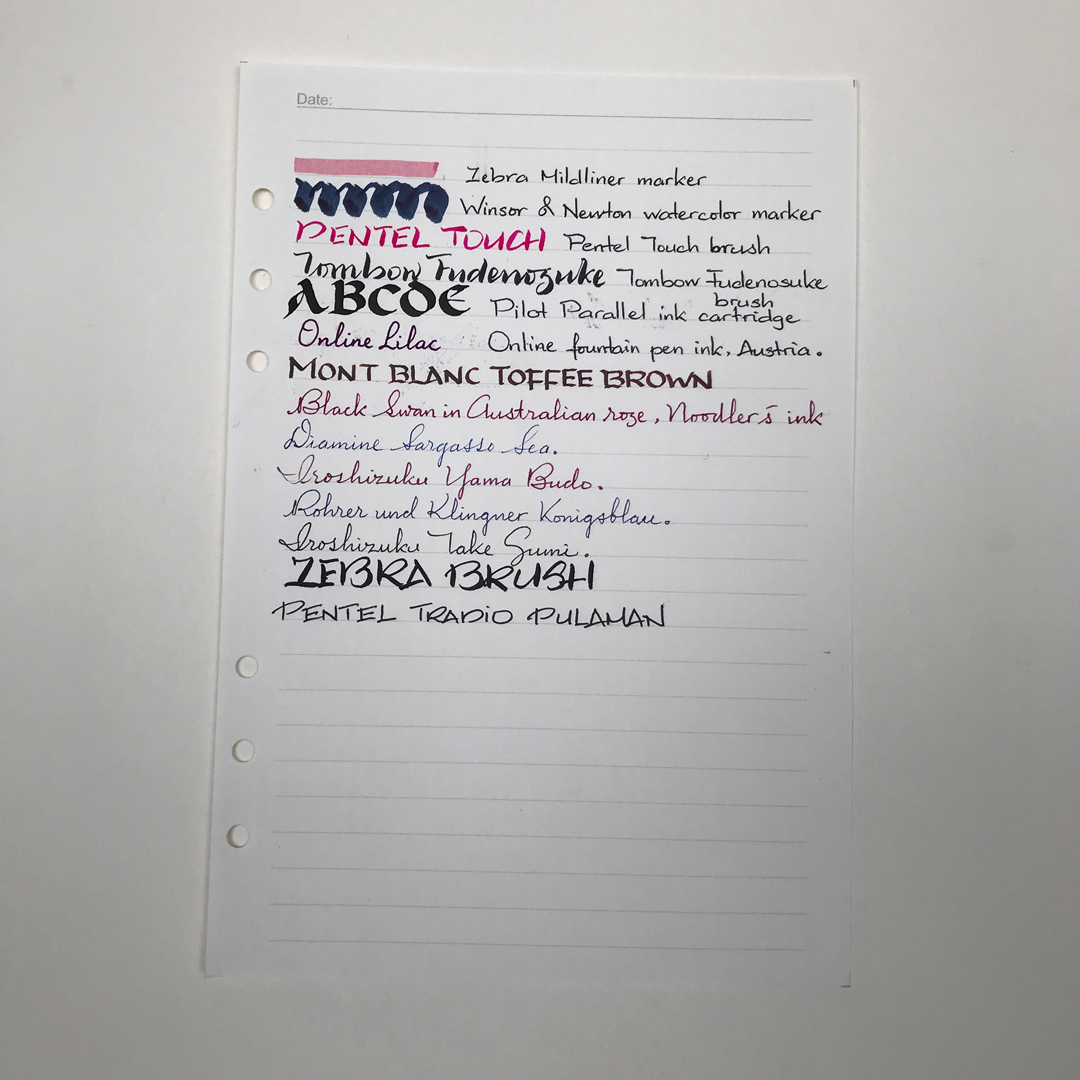 Date:
Zebra Mildliner marker
Winsor & Newton watercolor marker
PENTEL TOUCH Pentel Touch brush
Tombow Fudenozuke Tombow Fudenosuke brush
ABCDE Pilot Parallel ink cartridge
Online Lilac Online fountain pen ink, Austria.
MONT BLANC TOFFEE BROWN
Black Swan in Australian roze, Noodler's ink
Diamine Sargasso Sea.
Iroshizuku Yama Budo.
Rohrer und Klingner Konigsblau.
Iroshizuku Take Sumi.
ZEBRA BRUSH
PENTEL TRADIO PULAMAN